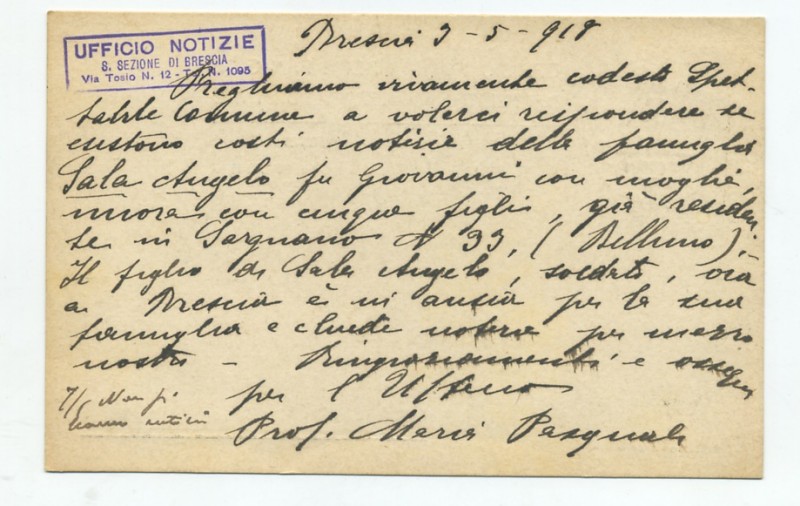 UFFICIO NOTIZIE
S. SEZIONE DI BRESCIA
Via Tosio N. 12 - T. N. 1095
Brescia 3-5-918
Preghiamo vivamente codesto Spet-
tabile Comune a volerci rispondere se
esistono costì notizie della famiglia
Sala Angelo fu Giovanni con moglie,
nuora con cinque figli, già residen-
te in Sargnano N 33, (Belluno),
Il figlio di Sala Angelo, soldato, ora
a Brescia è in ansia per la sua
famiglia e chiede notizie per mezzo
nostro - Ringraziamenti e ossequi
per l'Ufficio
Prof. Maria Pasquali
7/5 Non si
hanno notizie